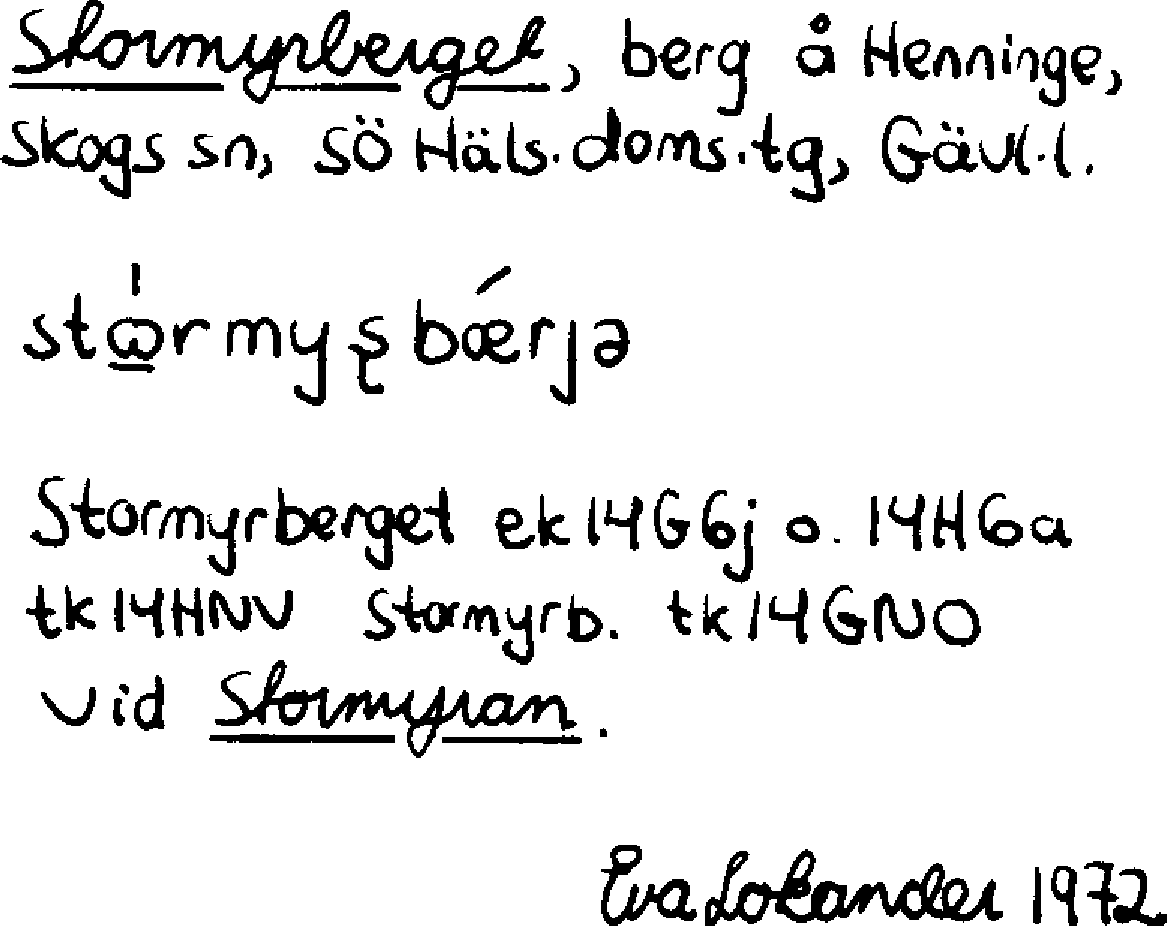 Stormyrberget, berg å Henninge,
Skogs sn, SÖ Häls. doms.tg, Gävl.l.
stω̲̍rmyʂbǽrjə
Stormyrberget ek 14G6j o. 14H6a
tk 14HNV Stormyrb. tk 14GNO
vid Stormyran.
Eva Lokander 1972